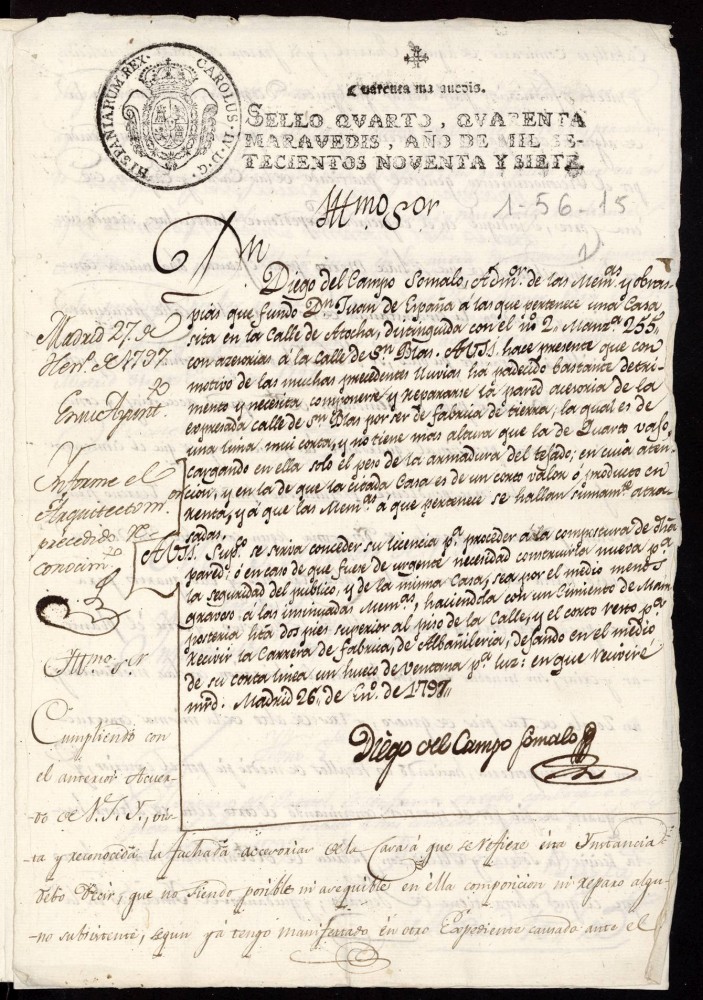 HISPANIARUM.REX. CAROLUS.IV.D.G.
Quarenta marauedis.
SELLO QVARTO, QVARENTA
MARAVEDIS, AÑO DE MIL SE-
TECIENTOS NOVENTA Y SIETE.
Illmo Sor
1-56-15
Dn
Diego del Campo Somalo, Admor. de las Memas. y obras-
pias que fundó Dn. Juan de España á las que pertenece una Casa
sita en la Calle de Atocha, distinguida con el no. 2,, Manza. 255,,
con azesorias á la Calle de Sn. Blas. A VSI. hace presente que con
motivo de las muchas precedentes lluvias ha padecido bastante detri-
mento y necesita componerse y repararse la pared acesoria de la
expresada calle de Sn. Blas por ser de fabrica de tierra, la qual es de
una linea mui corta, y no tiene mas altura que la de Quarto vajo,
cargando en ella solo el peso de la armadura del tejado; en cuia aten-
cion, y en la de que la citada Casa es de un corto valor ó producto en
renta, y á que las Memas. á que pertenece se hallan sumamte. atra-
sadas.
A VSI. Suppca. se sirva conceder su licencia pa. proceder a la compostura de dha
pared; ó en caso de que fuere de urgente necesidad construirla nueva pa.
la seguridad del publico, y de la misma Casa, sea por el medio menos
gravoso á las insinuadas Memas., haciendola con un Cimiento de Mam
posteria hta dos pies superior al piso de la Calle, y el corto resto pa.
recivir la Carrera de fabrica, de Albañileria, dejando en el medio
de su corta linea un hueco de ventana pa. luz: en que recivire
mrd. Madrid 26,, de Eno. de 1797,,
Diego del Campo Somalo
Madrid 27. de
Henro. de 1797.
En su Ayuntto.
Informe el
Arquitecto mor.
precedido Re-
conocimto.
Illmo. Sor.
Cumpliendo con
el anterior Acuer-
do de V.S.I., vis-
ta y reconocida la fachada accesorias de la Casa á que se refiere esta Instancia
debo decir, que no siendo posible ni asequible en ella composicion ni reparo algu-
no subsistente, segun ya tengo manifestado en otro Expediente causado ante el